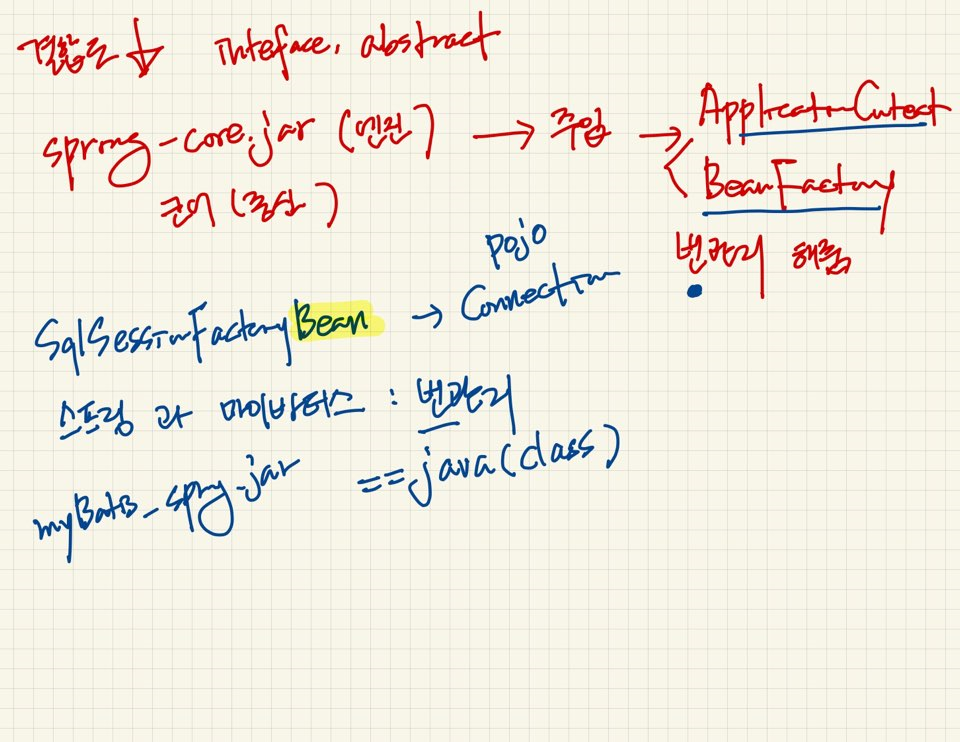 결합도 ↓ inteface. abstract
spring-core.jar (엔진) → 주입 → ApplicationCntext
코어 (증상)
BeanFactory
빈관리 해줌
pojo
SqlSessionFactoryBean → Connection
스프링 과 마이바티스 : 빈관리
myBatis_spring.jar == java(class)